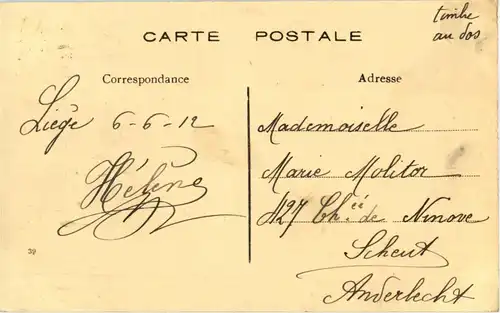 timbre
au dos
CARTE POSTALE
Correspondance
Liége 6-6-12
Hélène
39
Adresse
Mademoiselle
Marie Molitor
427 Ch.ée de Ninove
Scheut
Anderlecht